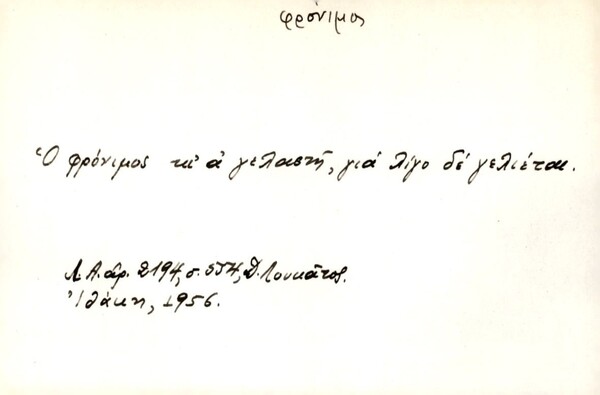 φρόνιμος
Ὁ φρόνιμος κι' ἀ γελαστῇ, γιά λίγο δέ γελιέται.
Λ.Α. ἀρ. 2194, σ. 554, Δ. Λουκᾶτος.
Ἰθάκη, 1956.